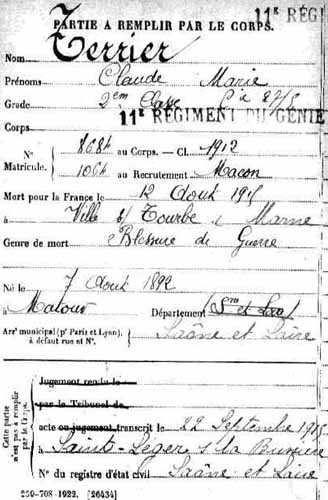 PARTIE A REMPLIR PAR LE CORPS. 11e RÉGI
Nom Terrier
Prénoms Claude Marie
Grade 2em Classe Cie 27/5
Corps 11e RÉGIMENT DU GÉNIE
N° Matricule. 8684 au Corps. — Cl. 1912
1064 au Recrutement Macon
Mort pour la France le 12 Août 1915
à Ville s/ Tourbe Marne
Genre de mort Blessure de Guerre
Né le 7 Août 1892
à Matour Département (Sne et Loire)
Arrt municipal (pr Paris et Lyon), à défaut rue et N°. Saône et Loire
Cette partie n'est pas à remplir par le Corps.
Jugement rendu le
par le Tribunal de
acte ou jugement transcrit le 22 Septembre 1915
à Saint-Léger s/ la Bussière
N° du registre d'état civil Saône et Loire
250-708-1922. [26434]